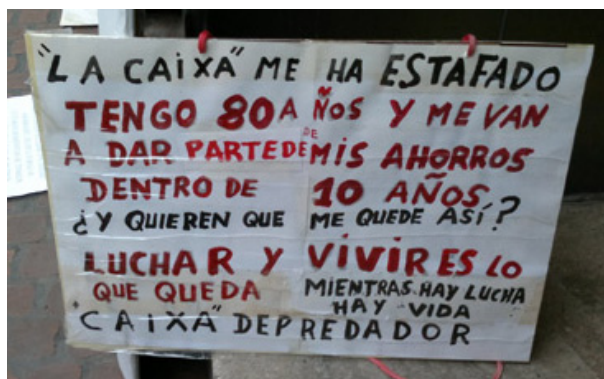 "LA CAiXA" ME HA ESTAFADO
TENGO 80 AÑOS Y ME VAN
A DAR PARTE DE MIS AHORROS
DENTRO DE 10 AÑOS
¿Y QUIEREN QUE ME QUEDE ASÍ?
LUCHAR Y VIVIR ES LO
QUE QUEDA MIENTRAS HAY LUCHA
HAY VIDA
"CAiXA" DEPREDADOR